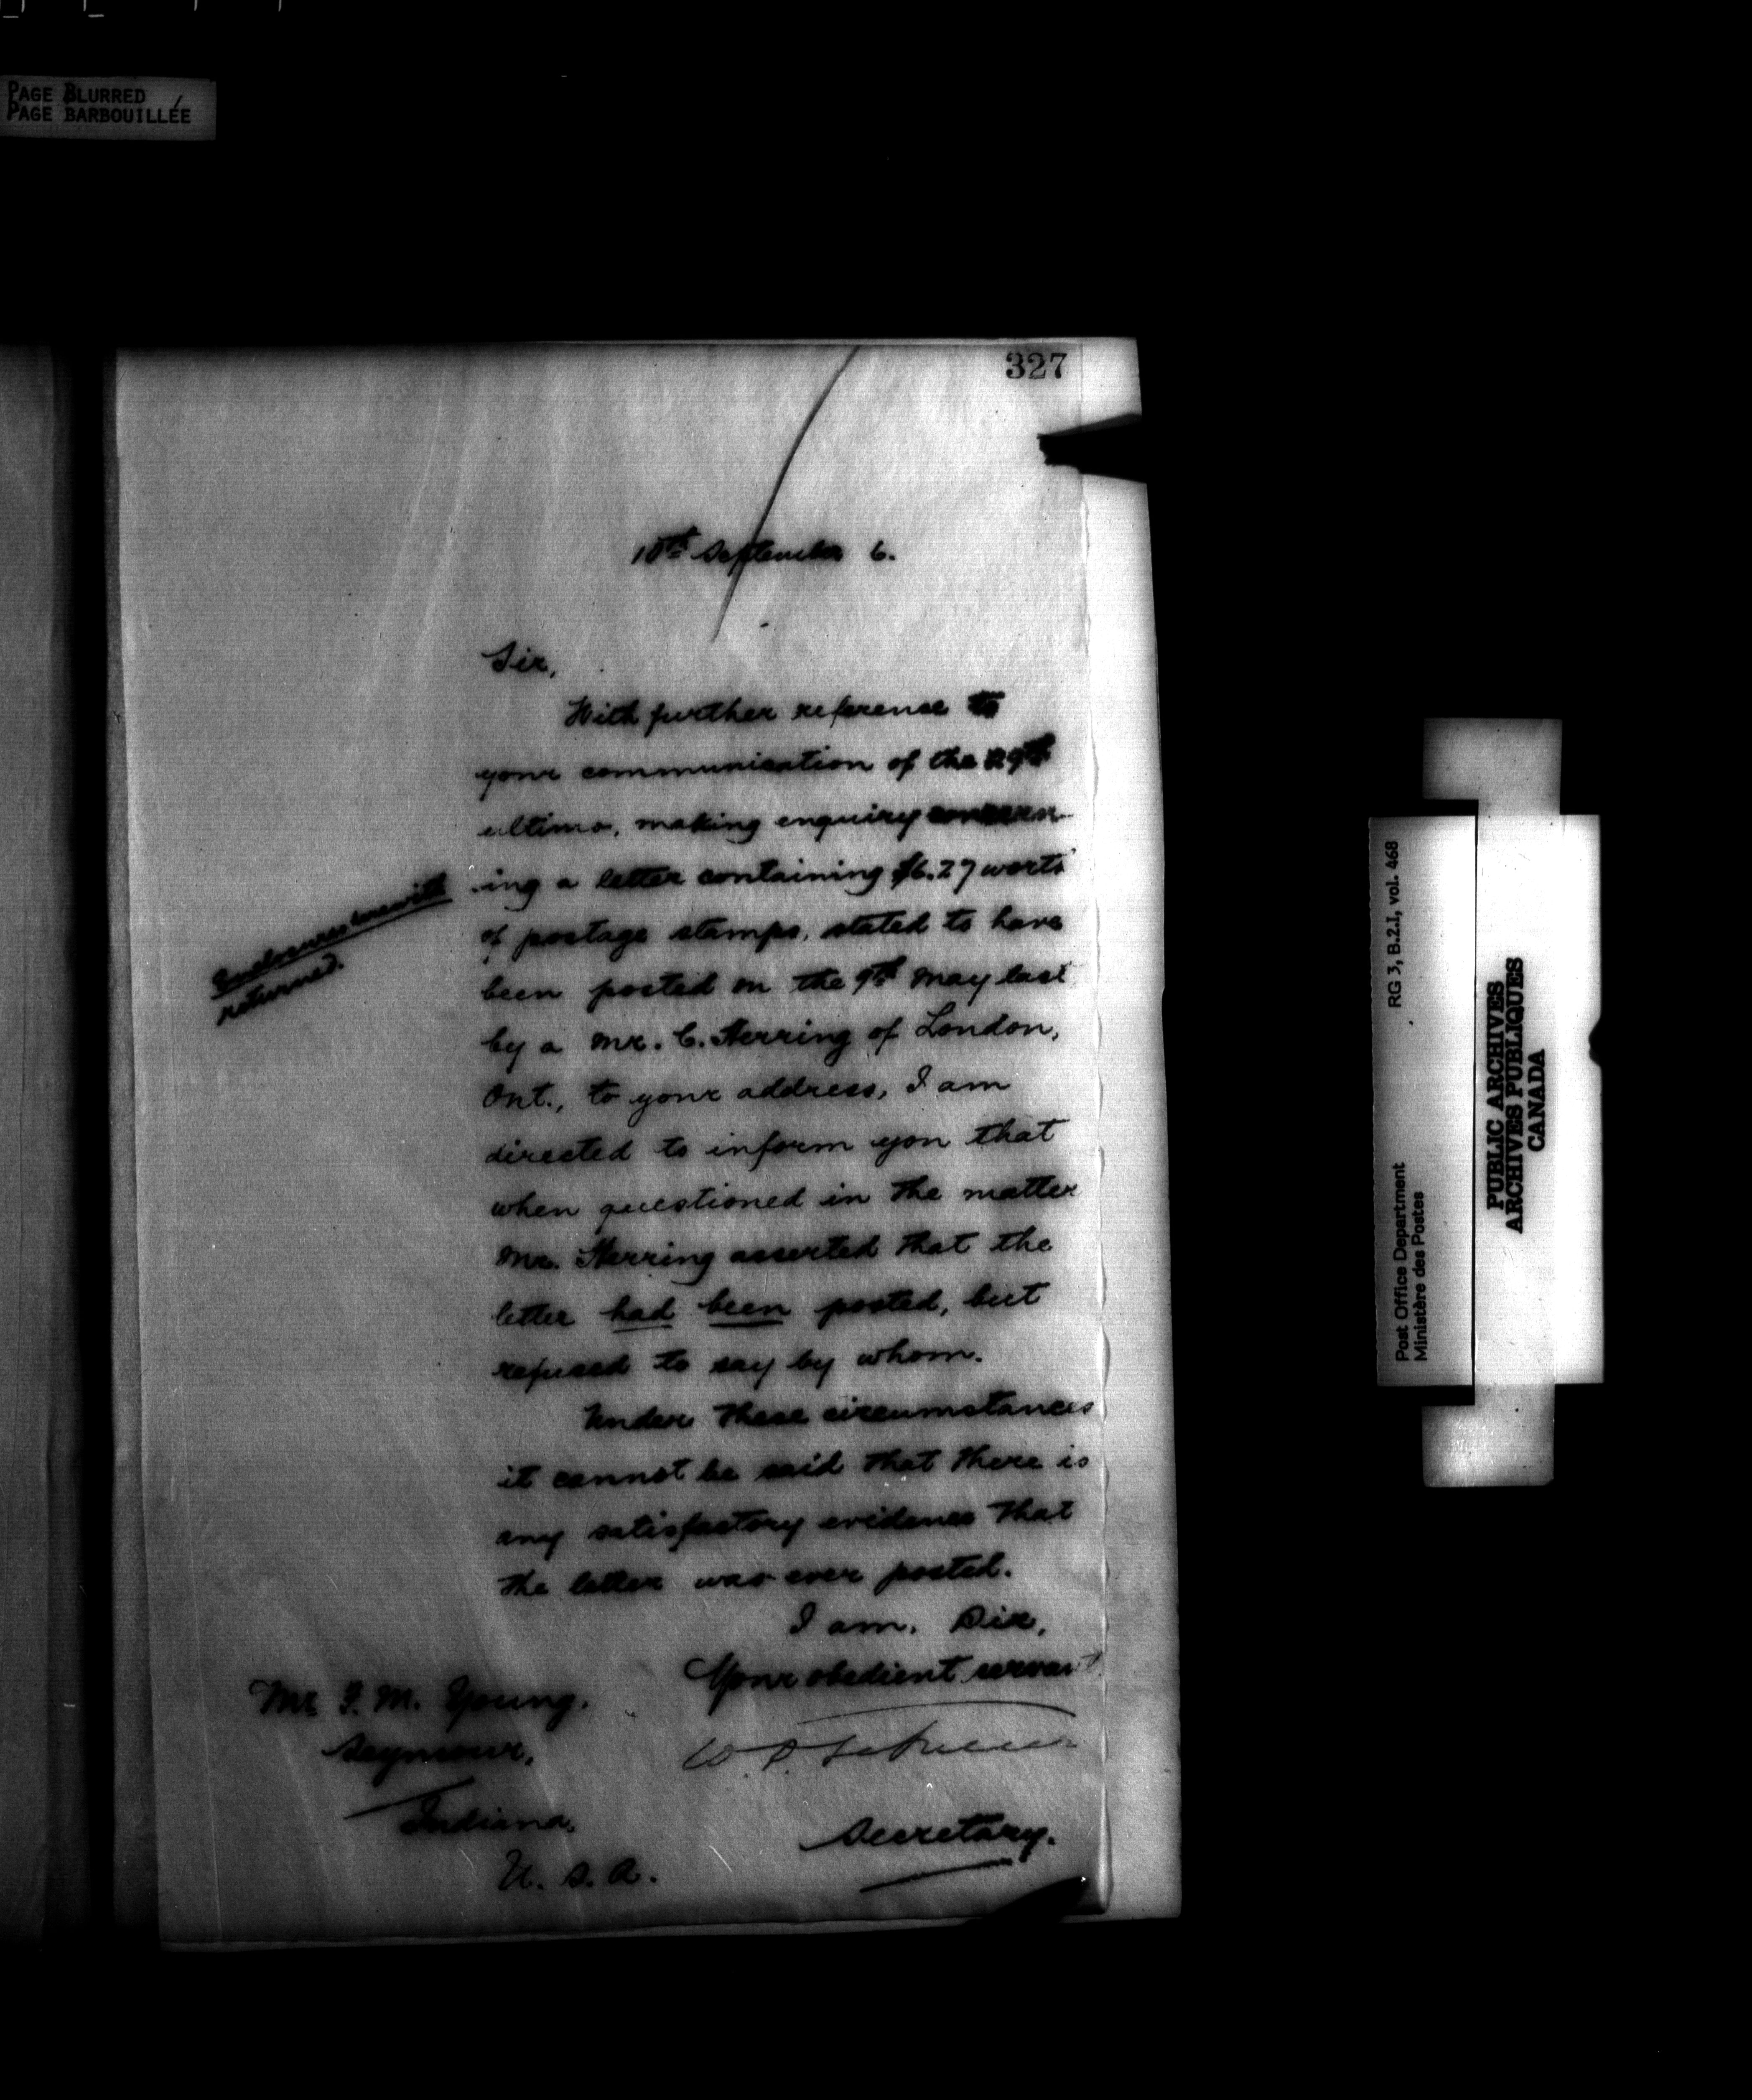 PAGE BLURRED
PAGE BARBOUILLÉE
327
10th September 6.
Sir,
With further reference to
your communication of the 29th
ultimo, making enquiry concern-
ing a letter containing $6.27 worth
of postage stamps, stated to have
been posted on the 9th May last
by a Mr. C. Herring of London,
Ont., to your address, I am
directed to inform you that
when questioned in the matter
Mr. Herring asserted that the
letter had been posted, but
refused to say by whom.
Under these circumstances
it cannot be said that there is
any satisfactory evidence that
the letter was ever posted.
I am, Sir,
Your obedient servant
Secretary.
Enclosures herewith
returned.
Mr. F. M. Young,
Seymour,
Indiana,
U. S. A.
RG 3, B.2.I, vol. 468
Post Office Department
Ministère des Postes
PUBLIC ARCHIVES
ARCHIVES PUBLIQUES
CANADA